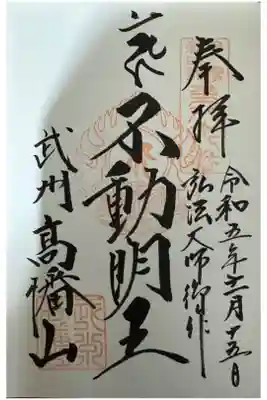 奉拝
令和五年十一月十五日
弘法大師御作
不動明王
武州 髙幡山